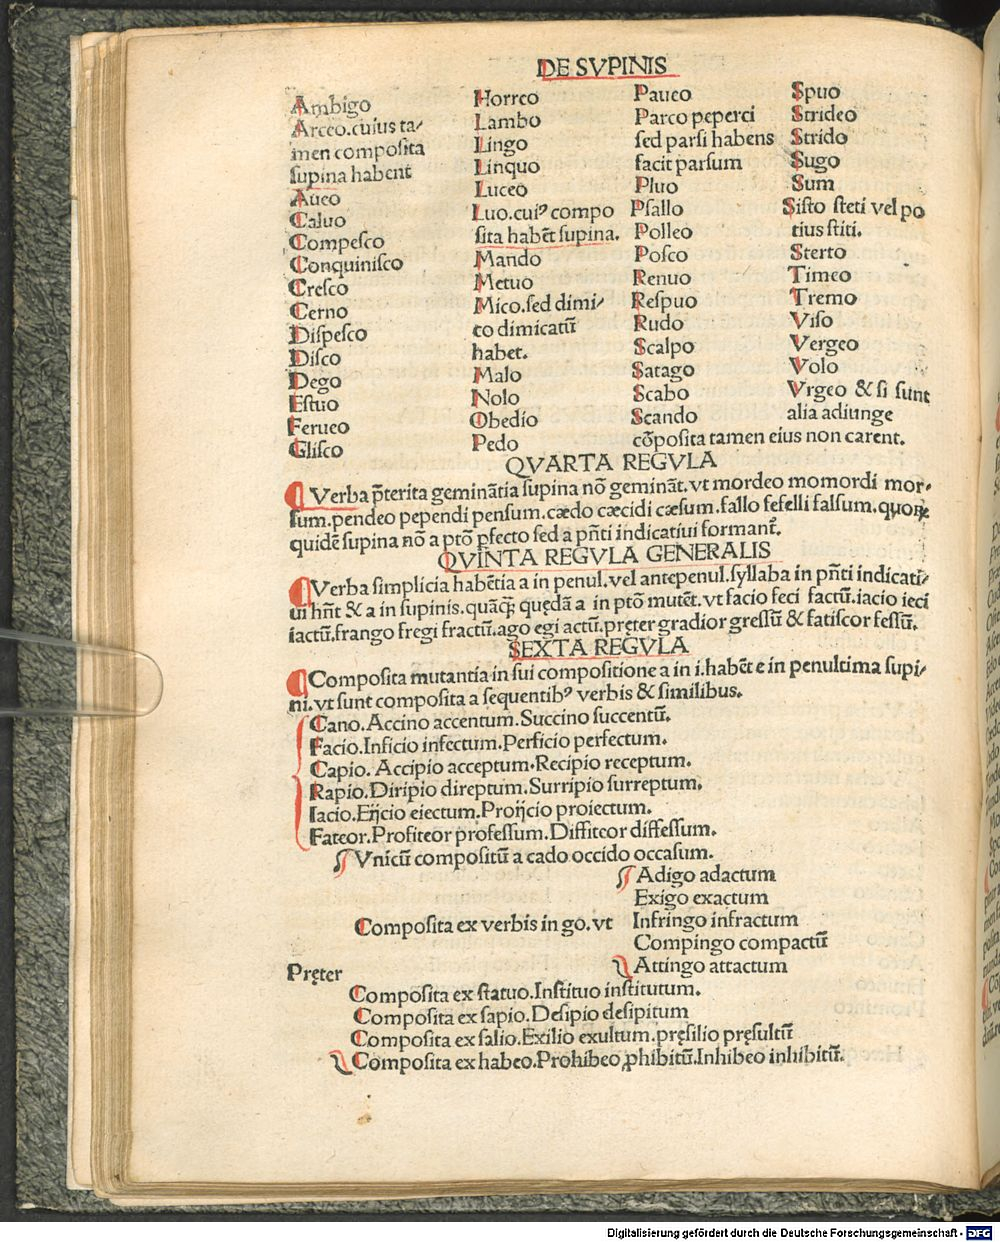 DE SVPINIS
Ambigo
Arceo.cuius ta/
men composita
supina habent
Aueo
Caluo
Compesco
Conquinisco
Cresco
Cerno
Dispesco
Disco
Dego
Estuo
Ferueo
Glisco
Horreo
Lambo
Lingo
Linquo
Luceo
Luo.cuiꝰ compo
sita habēt supina.
Mando
Metuo
Mico.sed dimi/
co dimicatū
habet.
Malo
Nolo
Obedio
Pedo
Paueo
Parco peperci
sed parsi habens
facit parsum
Pluo
Psallo
Polleo
Posco
Renuo
Respuo
Rudo
Scalpo
Satago
Scabo
Scando
cōposita tamen eius non carent.
Spuo
Strideo
Strido
Sugo
Sum
Sisto steti vel po
tius stiti.
Sterto
Timeo
Tremo
Viso
Vergeo
Volo
Vrgeo & si sunt
alia adiunge
QVARTA REGVLA
Verba p̄terita geminātia supina nō gemināt.vt mordeo momordi mor-
sum.pendeo pependi pensum.cædo cæcidi cæsum.fallo fefelli falsum.quoꝝ
quidē supina nō a ptō pfecto sed a pn̄ti indicatiui formant᷑.
QVINTA REGVLA GENERALIS
Verba simplicia habētia a in penul.vel antepenul.syllaba in pn̄ti indicati/
ui hn̄t & a in supinis.quāqꝫ quędā a in ptō mutēt.vt facio feci factū.iacio ieci
iactū.frango fregi fractū.ago egi actū.pręter gradior gressū & fatiscor fessū.
SEXTA REGVLA
Composita mutantia in sui compositione a in i.habēt e in penultima supi/
ni.vt sunt composita a sequentibꝰ verbis & similibus.
Cano.Accino accentum.Succino succentū.
Facio.Inficio infectum.Perficio perfectum.
Capio. Accipio acceptum.Recipio receptum.
Rapio.Diripio direptum.Surripio surreptum.
Iacio.Eijcio eiectum.Proijcio proiectum.
Fateor.Profiteor professum.Diffiteor diffessum.
Vnicū compositū a cado occido occasum.
Adigo adactum
Exigo exactum
Composita ex verbis in go. vt Infringo infractum
Compingo compactū
Attingo attactum
Pręter
Composita ex statuo.Instituo institutum.
Composita ex sapio.Desipio desipitum
Composita ex salio.Exilio exultum.pręsilio pręsultū
Composita ex habeo.Prohibeo ꝓhibitū.Inhibeo inhibitū.
Digitalisierung gefördert durch die Deutsche Forschungsgemeinschaft - DFG